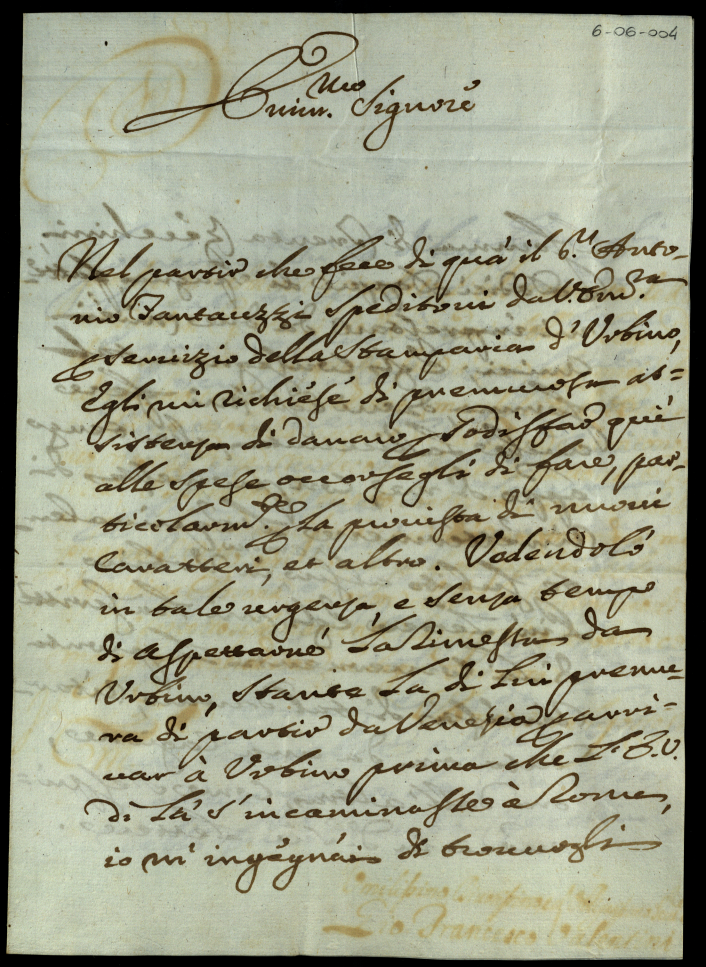 6-06-004
Emin.mo Signore
Nel partir che fece di quà il S.r Anto-
nio Fantauzzi speditovi da V. Em.za
p servizio della Stamparia d'Urbino,
Egli mi richiese di premurosa as=
sistenza di danaro p sodisfar quì
alle spese occorsegli di fare, par-
ticolarm.te p la provista di nuovi
Caratteri, et altro. Vedendolo
in tale urgenza, e senza tempo
di aspettarne La Rimessa da
Urbino, stante La di Lui premu=
ra di partir da Venezia p arri-
var à Urbino prima che
di Là s'incaminasse à Roma,
io m'ingegnai di trovargli
Gio Francesco